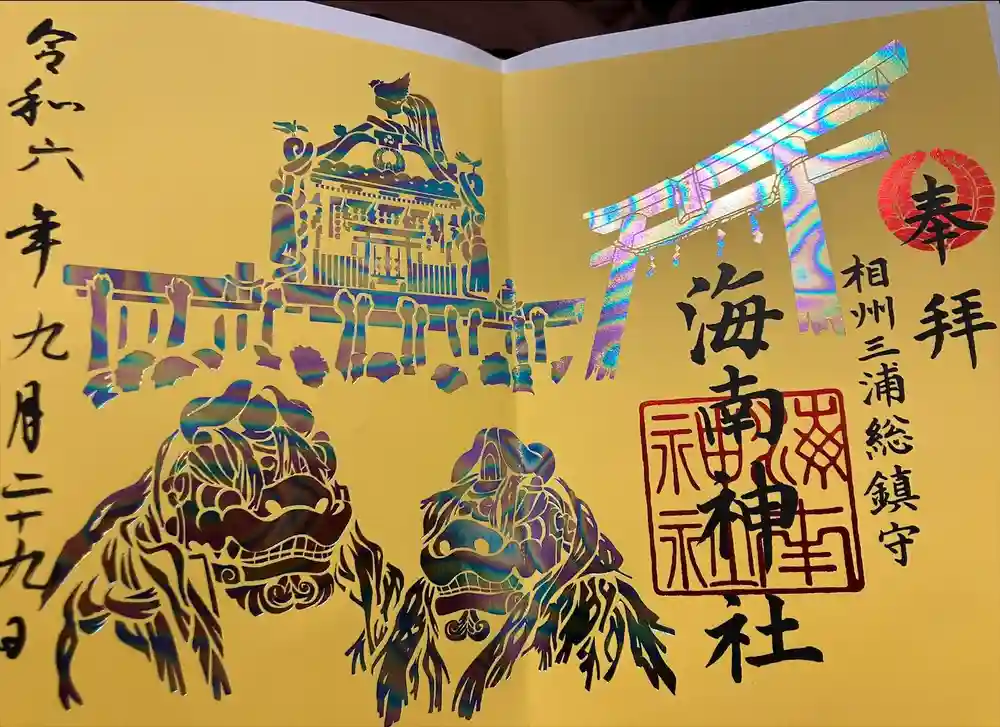 奉拝
相州三浦総鎮守
海南神社
海南神社
令和六年九月二十九日